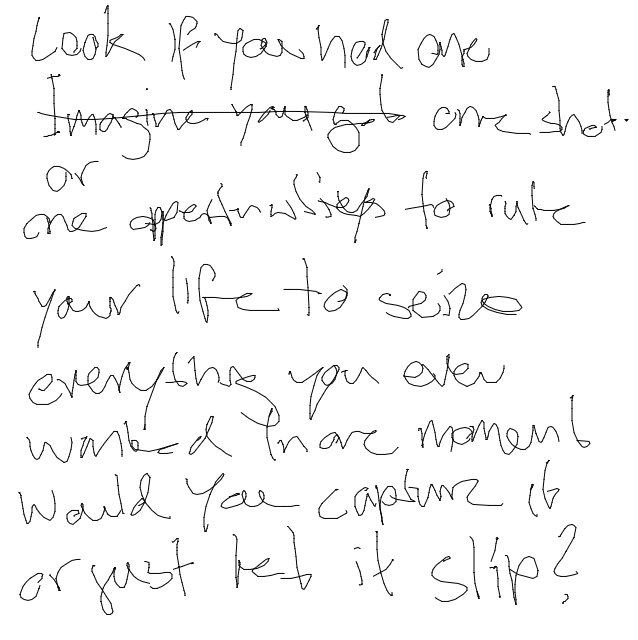 Look If you had one
Imagine you got one shot.
or
one opportunity to rule
your life to seize
everything you ever
wanted In one moment
Would you capture it
or just let it slip?